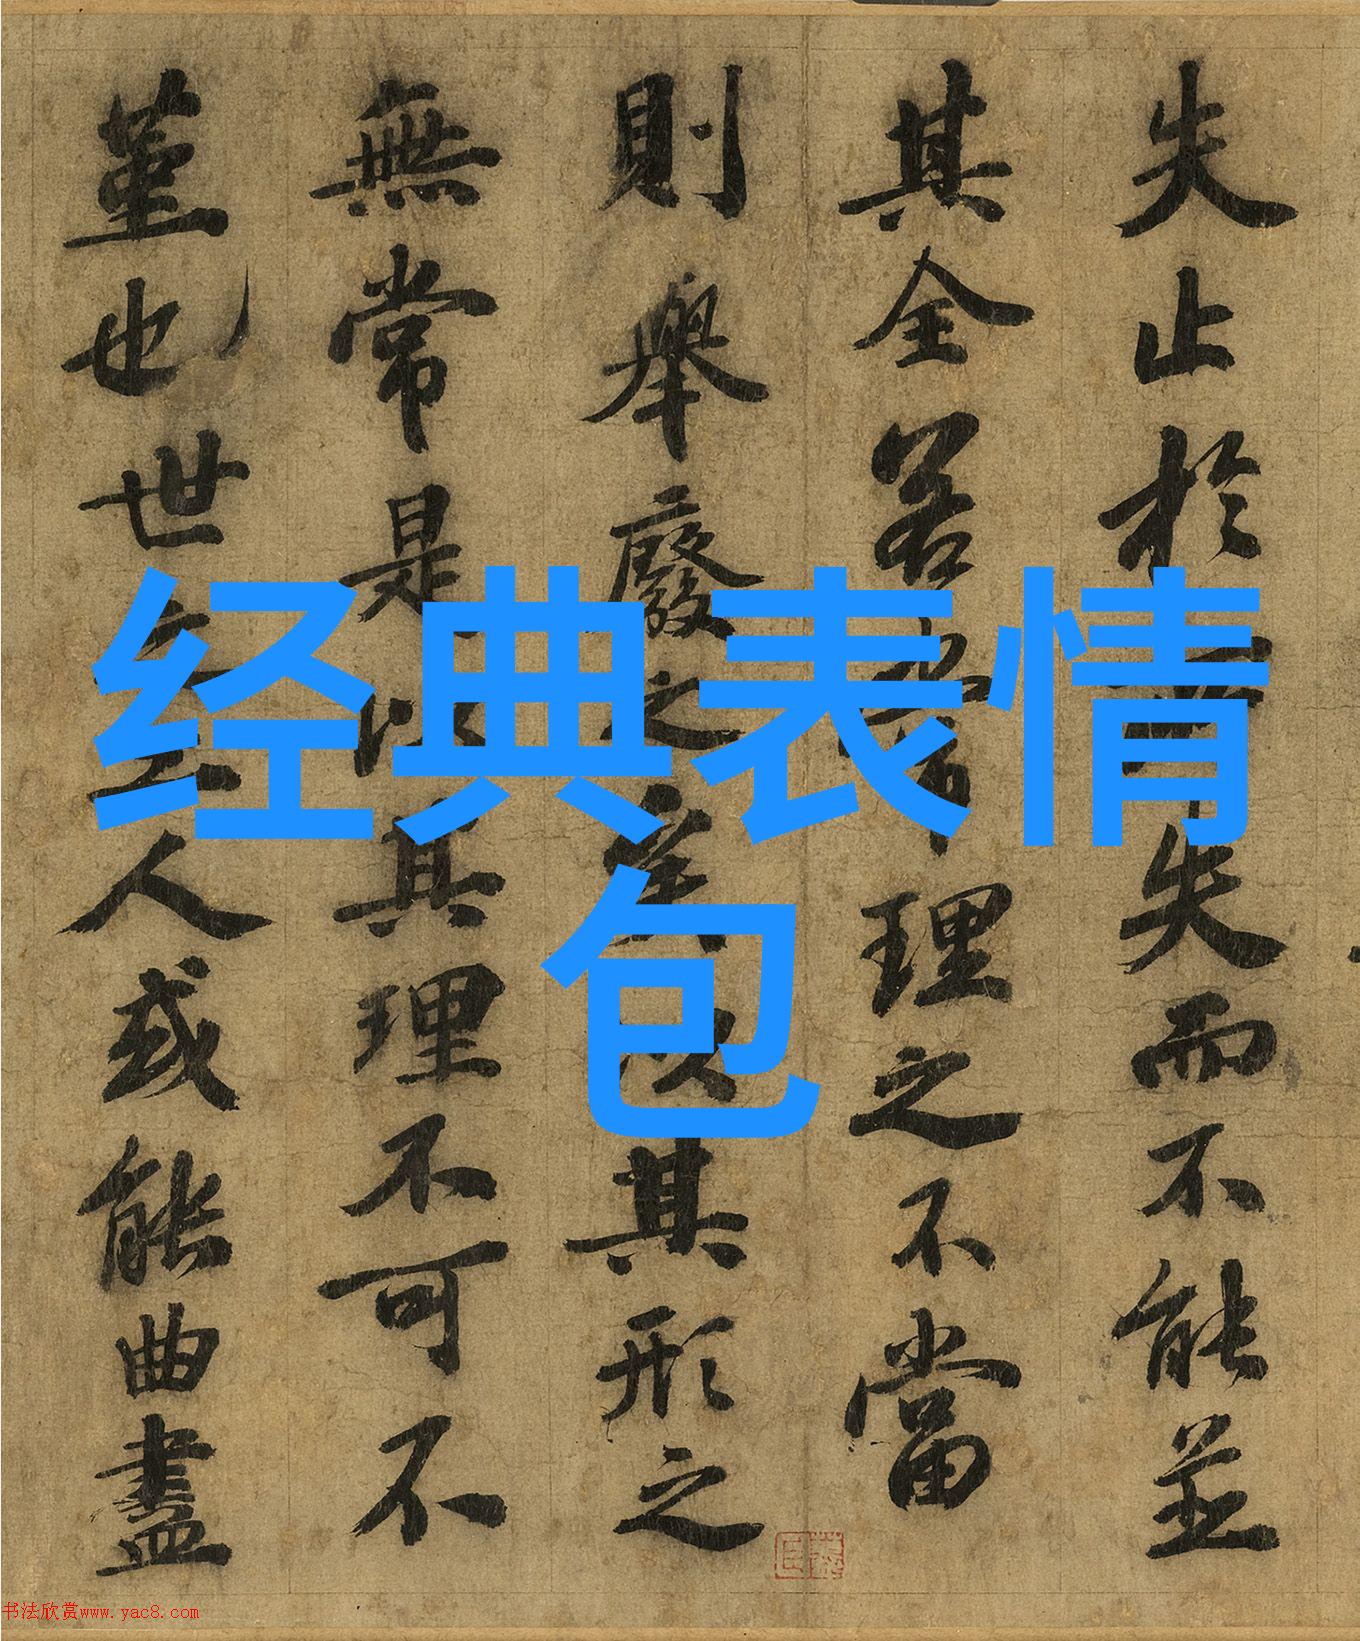 失止於失而不能並
其全若常理之不當
則舉廢之以其形之
無常是以其理不可不
堇也世之工人或能曲盡
经典表情
包
书法欣赏www.yac8.com